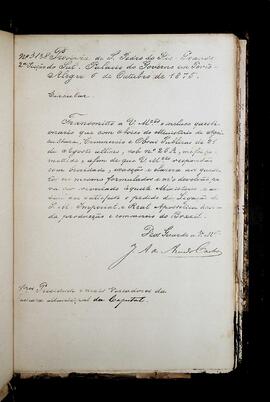 Nº 3138 Provincia de S. Pedro do Rio Grande
2ª Secção do Sul. Palacio do Governo em Porto
Alegre 6 de Outubro de 1875.
Circular.
Transmitto a V. Mcês o incluso questi
onario que com aviso do Ministerio da Agri
cultura, Commercio e Obras Publicas de 21
de Agosto ultimo, sob nº me foi re
mettido, afim de que V. Mcês respondão
com brevidade, exacção e clareza aos quesi
tos no mesmo formulados e m'o devolvão pa
ra ser enviado áquelle Ministerio e as
sim ser satisfeito o pedido da Legação de
S. M. Imperial e Real Apostolica ácerca
da producção e commercio do Brazil.
Deos Guarde a V. Mcês
J. A. de Azevedo Castro
Snres Presidente e mais Vereadores da
camara municipal da Capital.